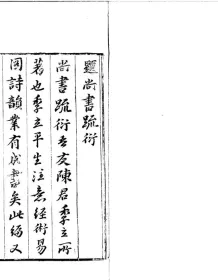 題尚書疏衍
尚書疏衍吾友陳君季立所
著也季立平生注意經術易
因詩韻業有成書矣此編又